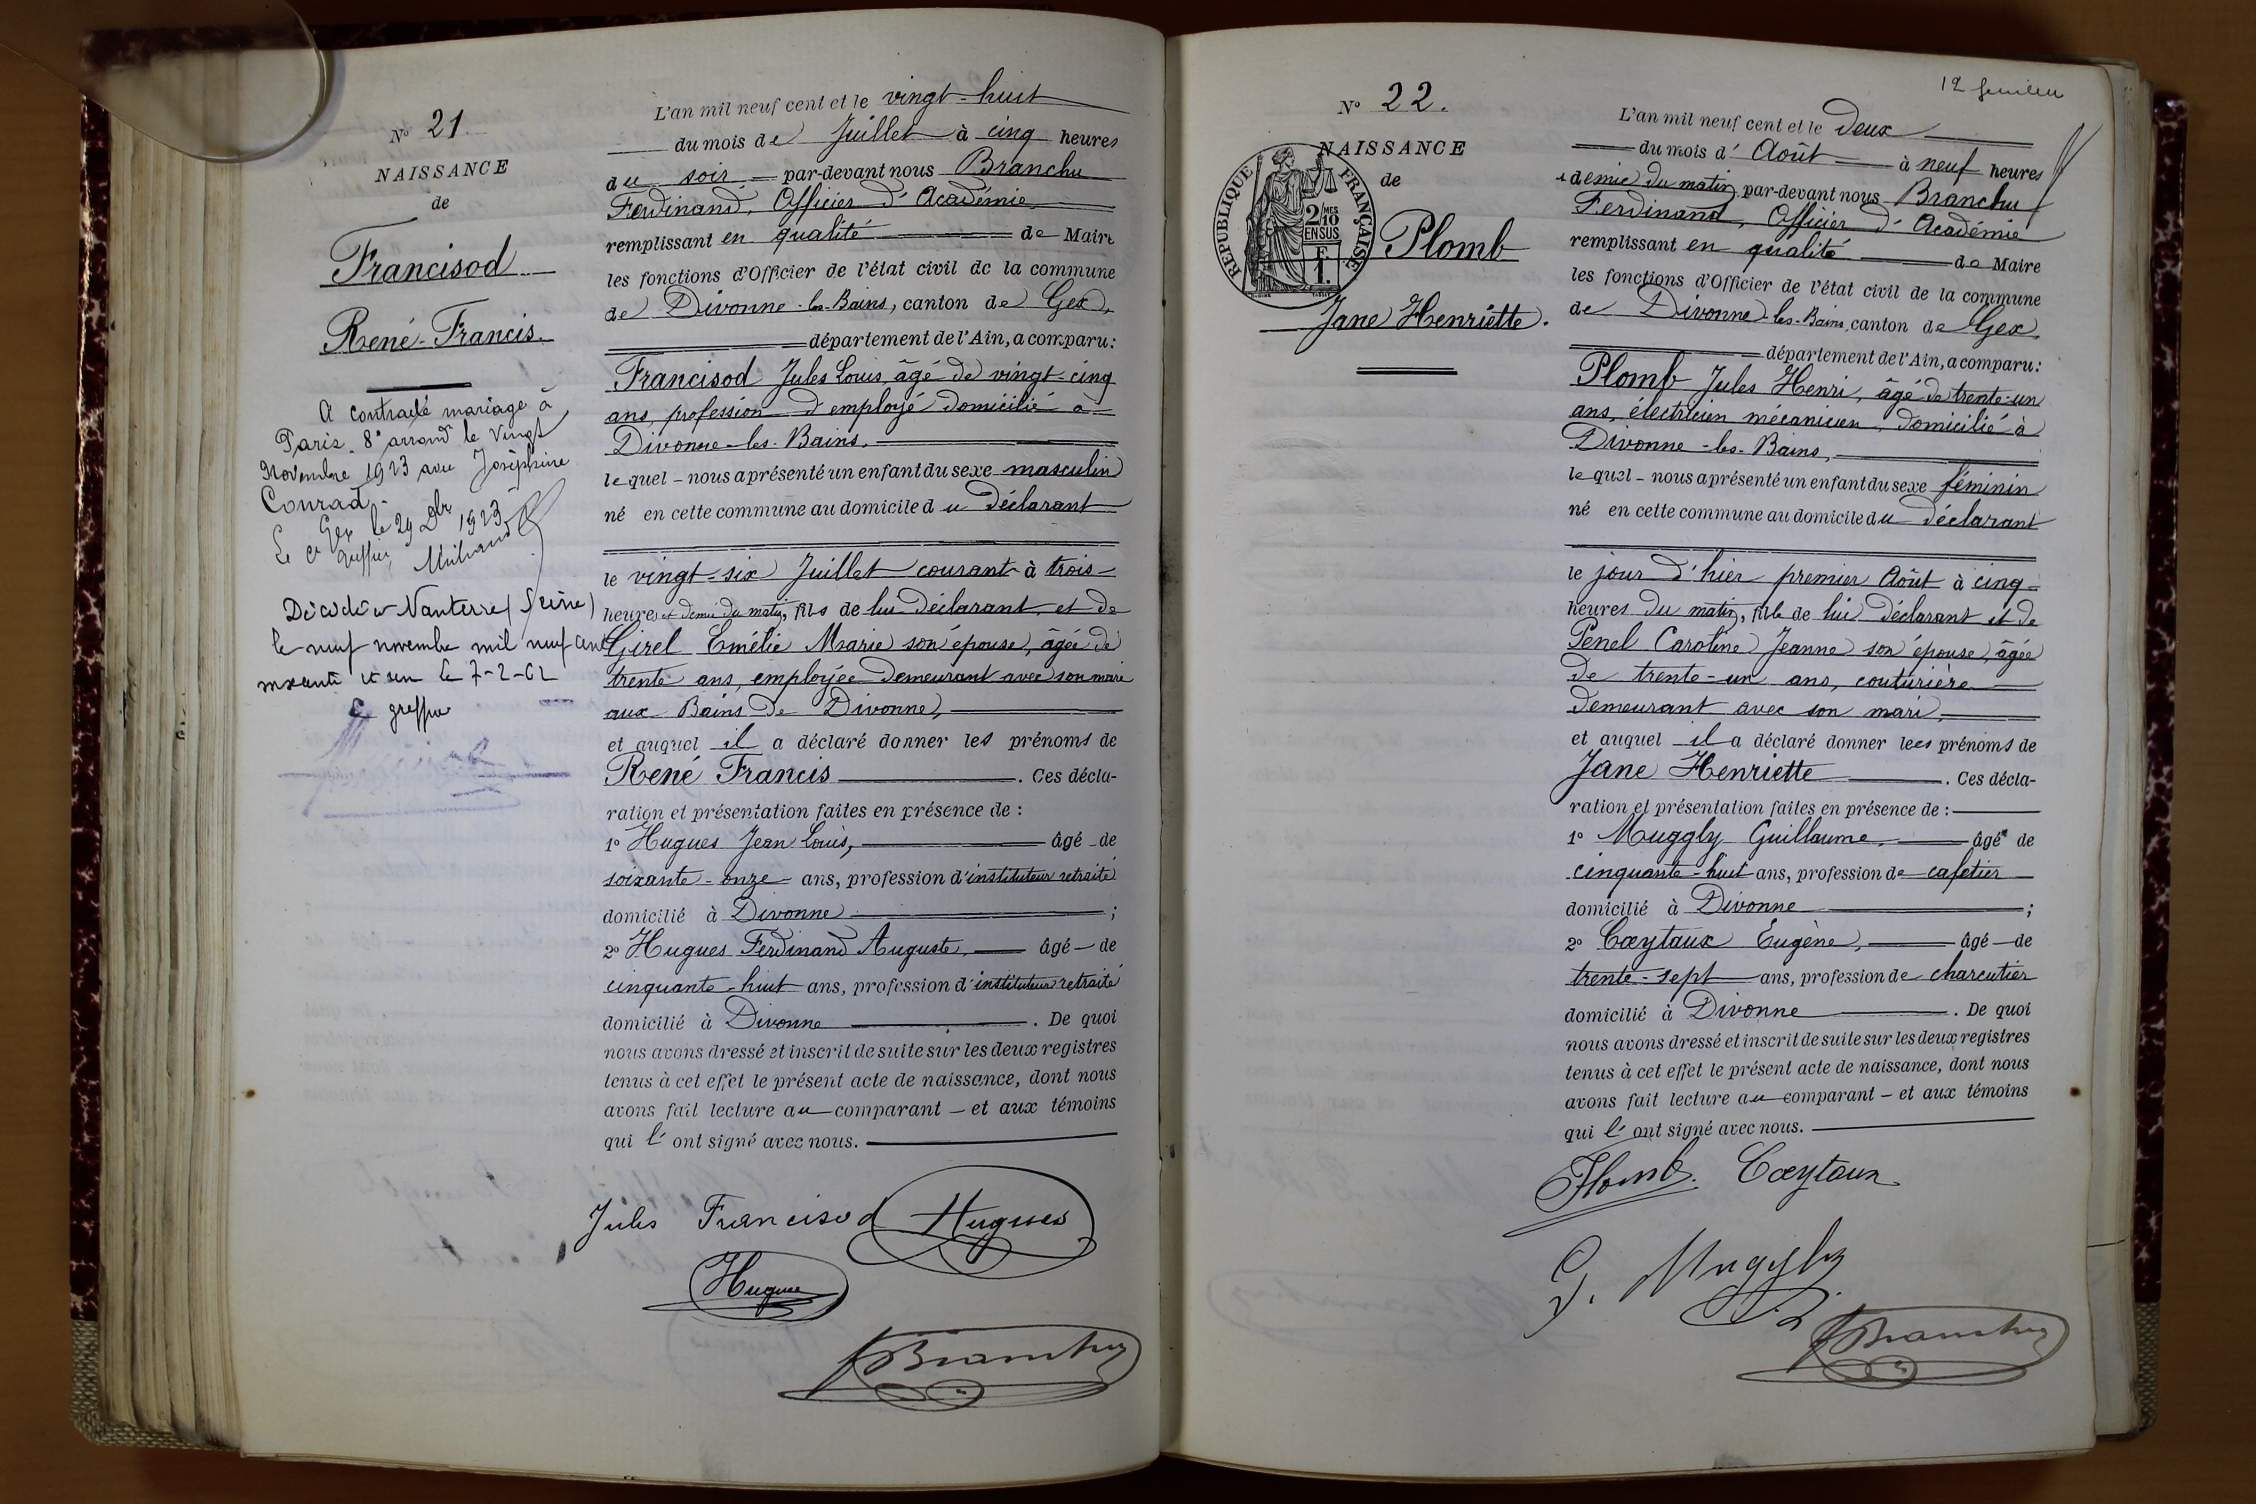 N° 21
NAISSANCE
de
Francisod
René-Francis.
A contracté mariage à
Paris. 8e arrond le Vingt
Novembre 1923 avec Joséphine
Conrad.
Gex le 29 Dbr 1923
Le Ce Greffier
Décédé à Nanterre (Seine)
le neuf novembre mil neuf cent
soixante et un le 7-2-62
Le greffier
L'an mil neuf cent et le vingt-huit
du mois de Juillet à cinq heures
du soir par-devant nous Branchu
Ferdinand, Officier d'Académie
remplissant en qualité de Maire
les fonctions d'Officier de l'état civil de la commune
de Divonne-les-Bains, canton de Gex,
département de l'Ain, a comparu:
Francisod Jules Louis, âgé de vingt-cinq
ans, profession d'employé domicilié à
Divonne-les-Bains,
lequel - nous a présenté un enfant du sexe masculin
né en cette commune au domicile du déclarant
le vingt-six Juillet courant à trois
heures et demie du matin, fils de lui déclarant et de
Girel Emélie Marie son épouse, âgée de
trente ans, employée demeurant avec son mari
aux Bains de Divonne,
et auquel il a déclaré donner les prénoms de
René Francis. Ces décla-
ration et présentation faites en présence de :
1° Hugues Jean Louis, âgé de
soixante-onze ans, profession d'instituteur retraité
domicilié à Divonne ;
2° Hugues Ferdinand Auguste, âgé de
cinquante-huit ans, profession d'instituteur retraité
domicilié à Divonne. De quoi
nous avons dressé et inscrit de suite sur les deux registres
tenus à cet effet le présent acte de naissance, dont nous
avons fait lecture au comparant - et aux témoins
qui l'ont signé avec nous.
Jules Francisod Hugues
Hugues
FBranchu
12 Février
N° 22.
NAISSANCE
de
RÉPUBLIQUE FRANÇAISE
2/10 MES
EN SUS
F
1.
Plomb
Jane Henriette.
L'an mil neuf cent et le deux
du mois d'Août à neuf heures
& demie du matin, par-devant nous Branchu
Ferdinand, Officier d'Académie
remplissant en qualité de Maire
les fonctions d'Officier de l'état civil de la commune
de Divonne-les-Bains, canton de Gex
département de l'Ain, a comparu:
Plomb Jules Henri, âgé de trente-un
ans, électricien mécanicien, domicilié à
Divonne-les-Bains,
lequel - nous a présenté un enfant du sexe féminin
né en cette commune au domicile du déclarant
le jour d'hier premier Août à cinq
heures du matin, fille de lui déclarant et de
Penel Caroline Jeanne son épouse, âgée
de trente-un ans, couturière
demeurant avec son mari,
et auquel il a déclaré donner les prénoms de
Jane Henriette. Ces décla-
ration et présentation faites en présence de :
1° Muggly Guillaume, âgé de
cinquante-huit ans, profession de cafetier
domicilié à Divonne ;
2° Coeytaux Eugène, âgé de
trente-sept ans, profession de charcutier
domicilié à Divonne. De quoi
nous avons dressé et inscrit de suite sur les deux registres
tenus à cet effet le présent acte de naissance, dont nous
avons fait lecture au comparant - et aux témoins
qui l'ont signé avec nous.
Plomb. Coeytaux
G. Muggly
FBranchu